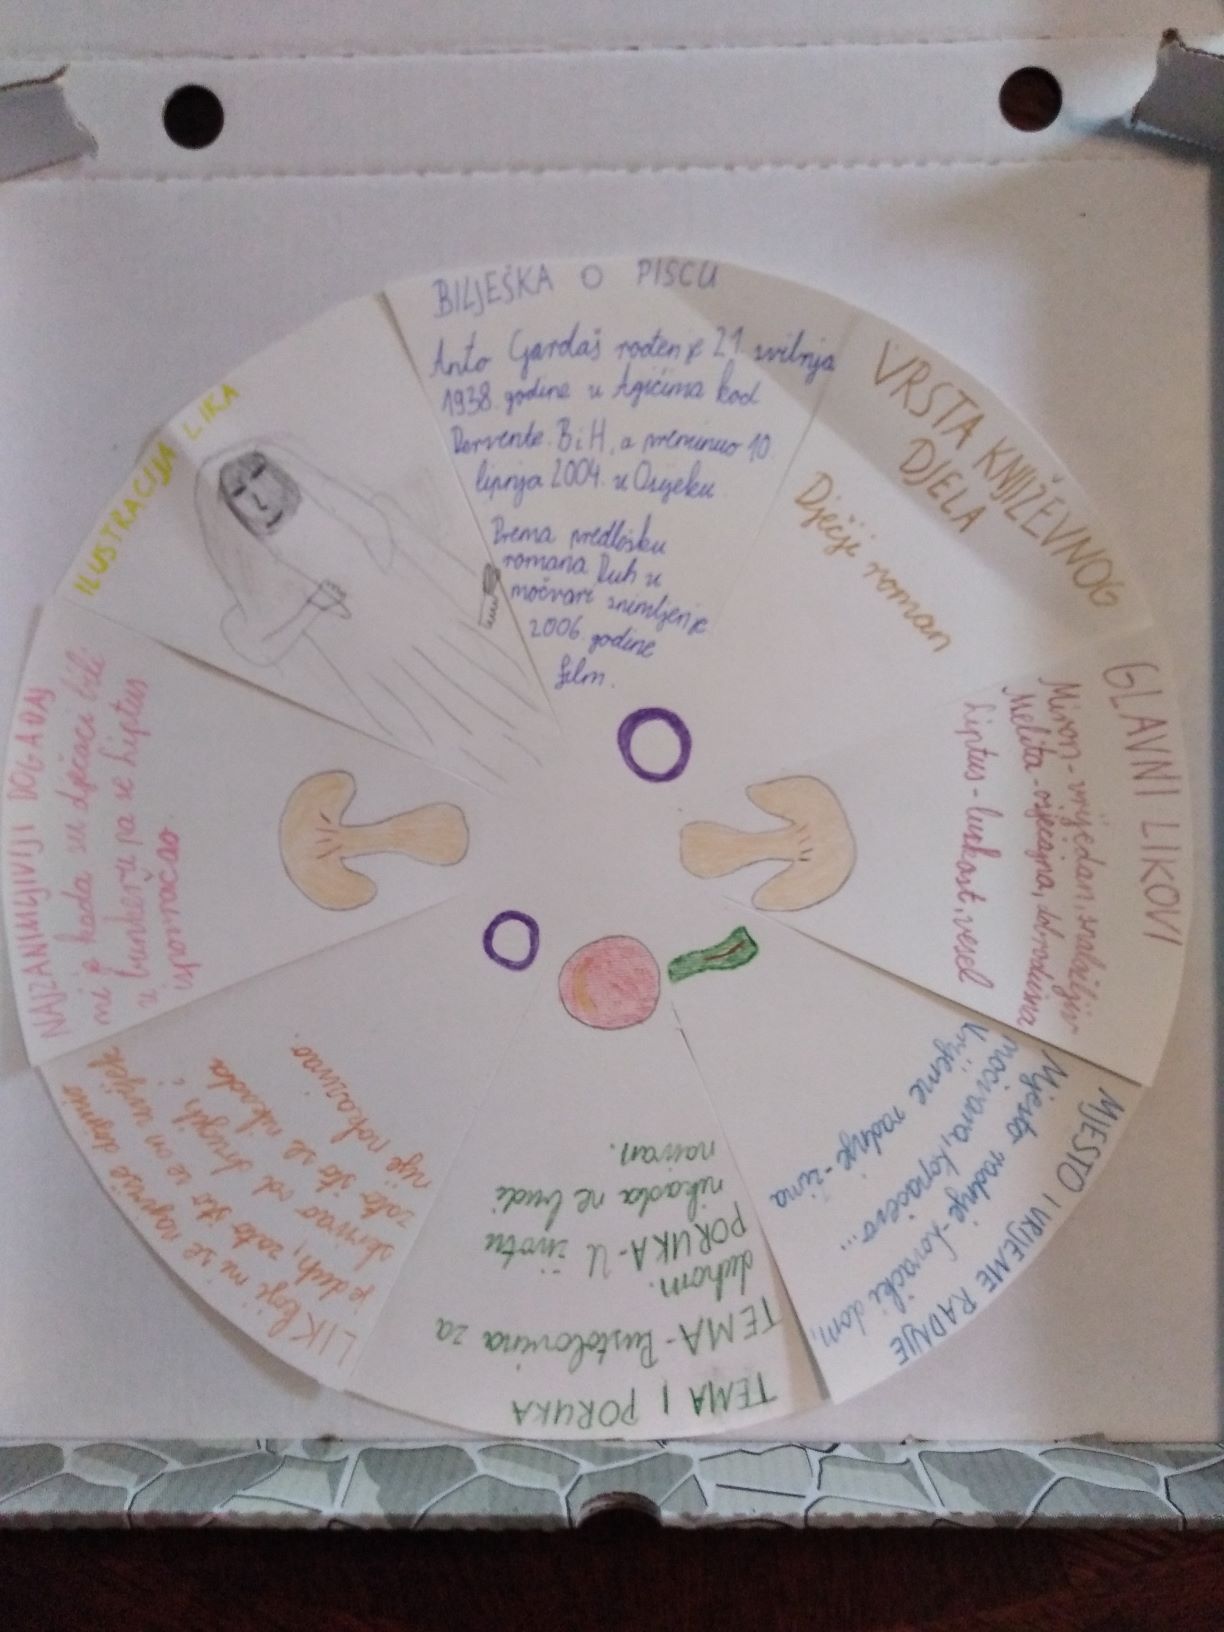 BILJEŠKA O PISCU
Anto Gardaš rođen je 21. svibnja
1938. godine u Agićima kod
Dervente. BiH, a preminuo 10.
lipnja 2004. u Osijeku.
Prema predlošku
romana Duh u
močvari snimljen je
2006. godine
film.
VRSTA KNJIŽEVNOG
DJELA
Dječji roman
GLAVNI LIKOVI
Miron - vrijedan, snalažljiv
Melita - osjećajna, dobrodušna
Liptus - lukast, vesel
MJESTO I VRIJEME RADNJE
Mjesto radnje - Lovački dom,
močvara, Kopačevo...
Vrijeme radnje - zima
TEMA I PORUKA
TEMA - Pustolovina za
duhom.
PORUKA - U životu
nikada ne budi
naivan.
LIK koji mi se najviše dojmio
je duh, zato što se on uvijek
skrivao od drugih i
zato što se nikada
nije pokazivao.
NAJZANIMLJIVIJI DOGAĐAJ
mi je kada su dječaci bili
u bunkeru pa se Liptus
ispovraćao.
ILUSTRACIJA LIKA